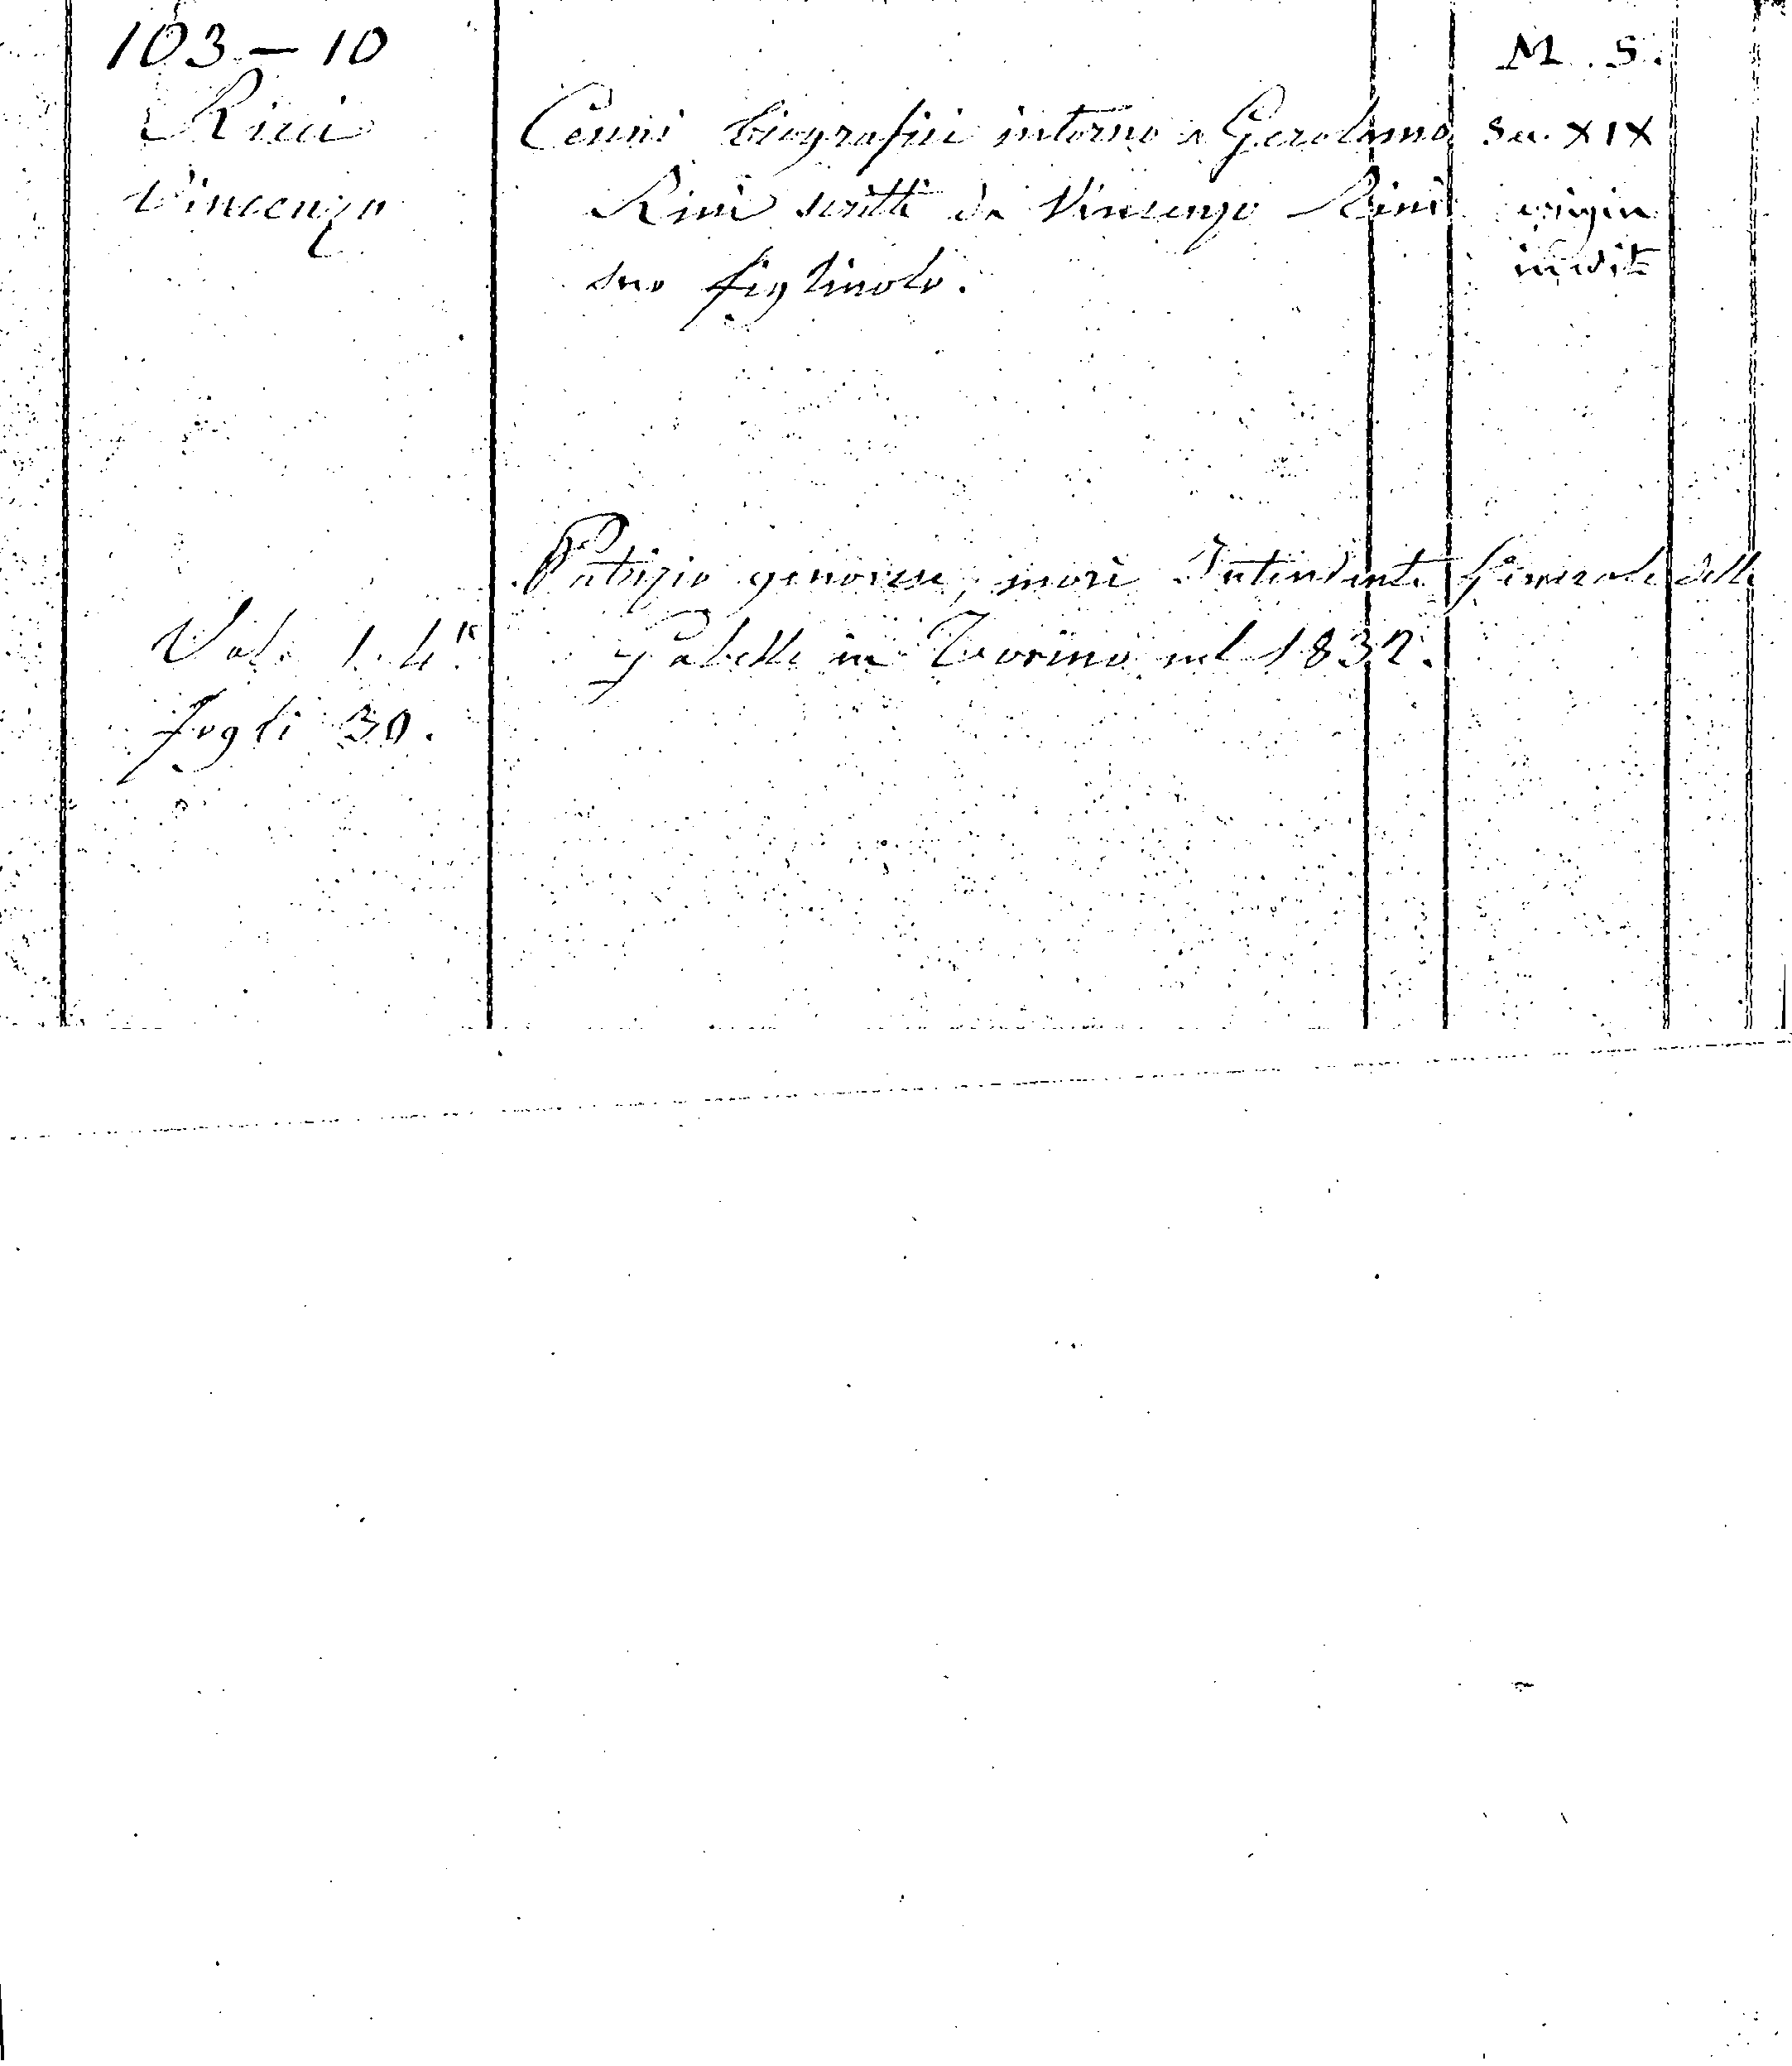 103 – 10
M. S.
Ricci
Vincenzo
Cenni biografici intorno a Gerolamo
Ricci scritti da Vincenzo Ricci
suo figliuolo.
Sec. XIX
origin
inedit
Patrizio genovese, morì Intendente Generale delle
Gabelle in Torino nel 1832.
Vol. 1. 4.º
Fogli 30.